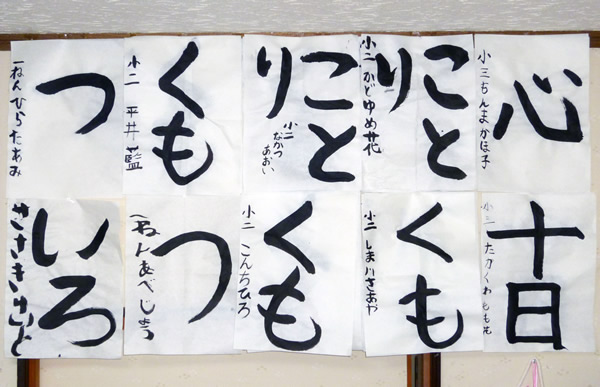 心
小三ちんまかほ子
ことり
小二かどゆめ花
ことり
小二
なかつ
あおい
くも
小二 平井藍
つ
一ねんひらたあみ
十日
小三 たカくわ ももえ
くも
小二 しま川さあや
くも
小二 こんちひろ
つ
一ねんあべじゅ
いろ
ささき